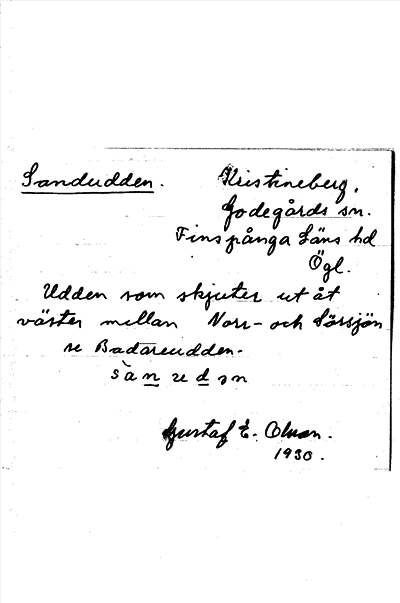 Sandudden. Kristineberg,
Godegårds sn.
Finspånga Läns hd
Ögl.
Udden som skjuter ut åt
väster mellan Norr- och Sörsjön
se Badareudden.
sànudən
Gustaf E. Olsson.
1930.